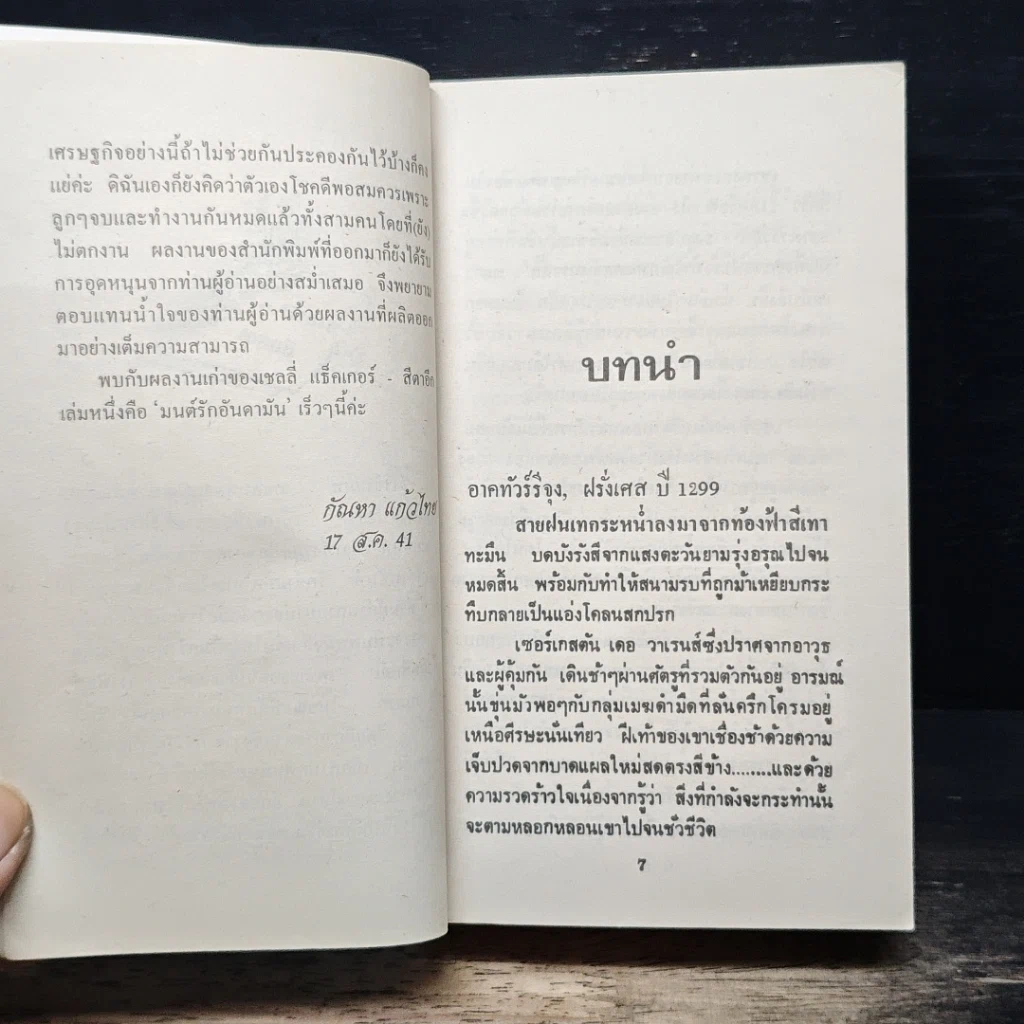 เศรษฐกิจอย่างนี้ถ้าไม่ช่วยกันประคองกันไว้บ้างก็คง
แย่ค่ะ ดิฉันเองก็ยังคิดว่าตัวเองโชคดีพอสมควรเพราะ
ลูกๆจบและทำงานกันหมดแล้วทั้งสามคนโดยที่(ยัง)
ไม่ตกงาน ผลงานของสำนักพิมพ์ที่ออกมาก็ยังได้รับ
การอุดหนุนจากท่านผู้อ่านอย่างสม่ำเสมอ จึงพยายาม
ตอบแทนน้ำใจของท่านผู้อ่านด้วยผลงานที่ผลิตออก
มาอย่างเต็มความสามารถ
พบกับผลงานเก่าของเชลลี่ แธ็คเกอร์ - สีดาอีก
เล่มหนึ่งคือ 'มนต์รักอันดามัน' เร็วๆนี้ค่ะ
กัณหา แก้วไทย
17 ส.ค. 41
บทนำ
อาคทัวร์ริจุง, ฝรั่งเศส ปี 1299
สายฝนเทกระหน่ำลงมาจากท้องฟ้าสีเทา
ทะมึน บดบังรังสีจากแสงตะวันยามรุ่งอรุณไปจน
หมดสิ้น พร้อมกับทำให้สนามรบที่ถูกม้าเหยียบกระ
ทืบกลายเป็นแอ่งโคลนสกปรก
เซอร์เกสตัน เดอ วาเรนส์ซึ่งปราศจากอาวุธ
และผู้คุ้มกัน เดินช้าๆผ่านศัตรูที่รวมตัวกันอยู่ อารมณ์
นั้นขุ่นมัวพอๆกับกลุ่มเมฆดำมืดที่ลั่นครึกโครมอยู่
เหนือศีรษะนั่นเทียว ฝีเท้าของเขาเชื่องช้าด้วยความ
เจ็บปวดจากบาดแผลใหม่สดตรงสีข้าง........และด้วย
ความรวดร้าวใจเนื่องจากรู้ว่า สิ่งที่กำลังจะกระทำนั้น
จะตามหลอกหลอนเขาไปจนชั่วชีวิต
7